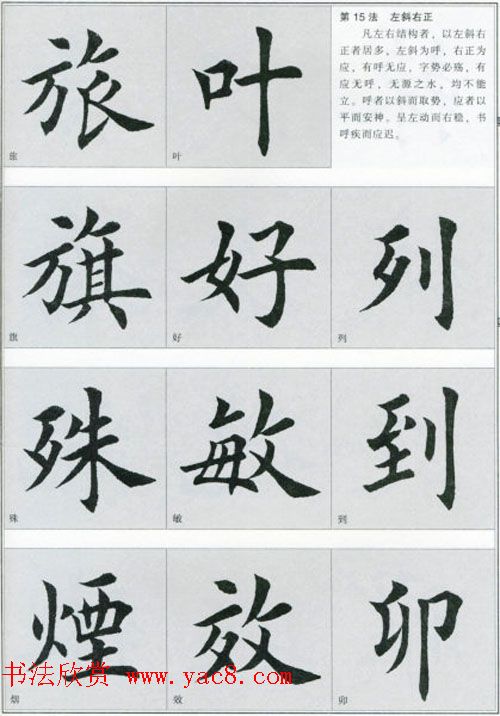 第15法 左斜右正
凡左右结构者，以左斜右
正者居多，左斜为呼，右正为
应，有呼无应，字势必殇，有
应无呼，无源之水，均不能
立。呼者以斜而取势，应者以
平而安神。呈左动而右稳，书
呼疾而应迟。
旅 叶
旅 叶
旗 好 列
旗 好 列
殊 敏 到
殊 敏 到
煙 效 卯
烟 效 卯
书法欣赏 www.yac8.com